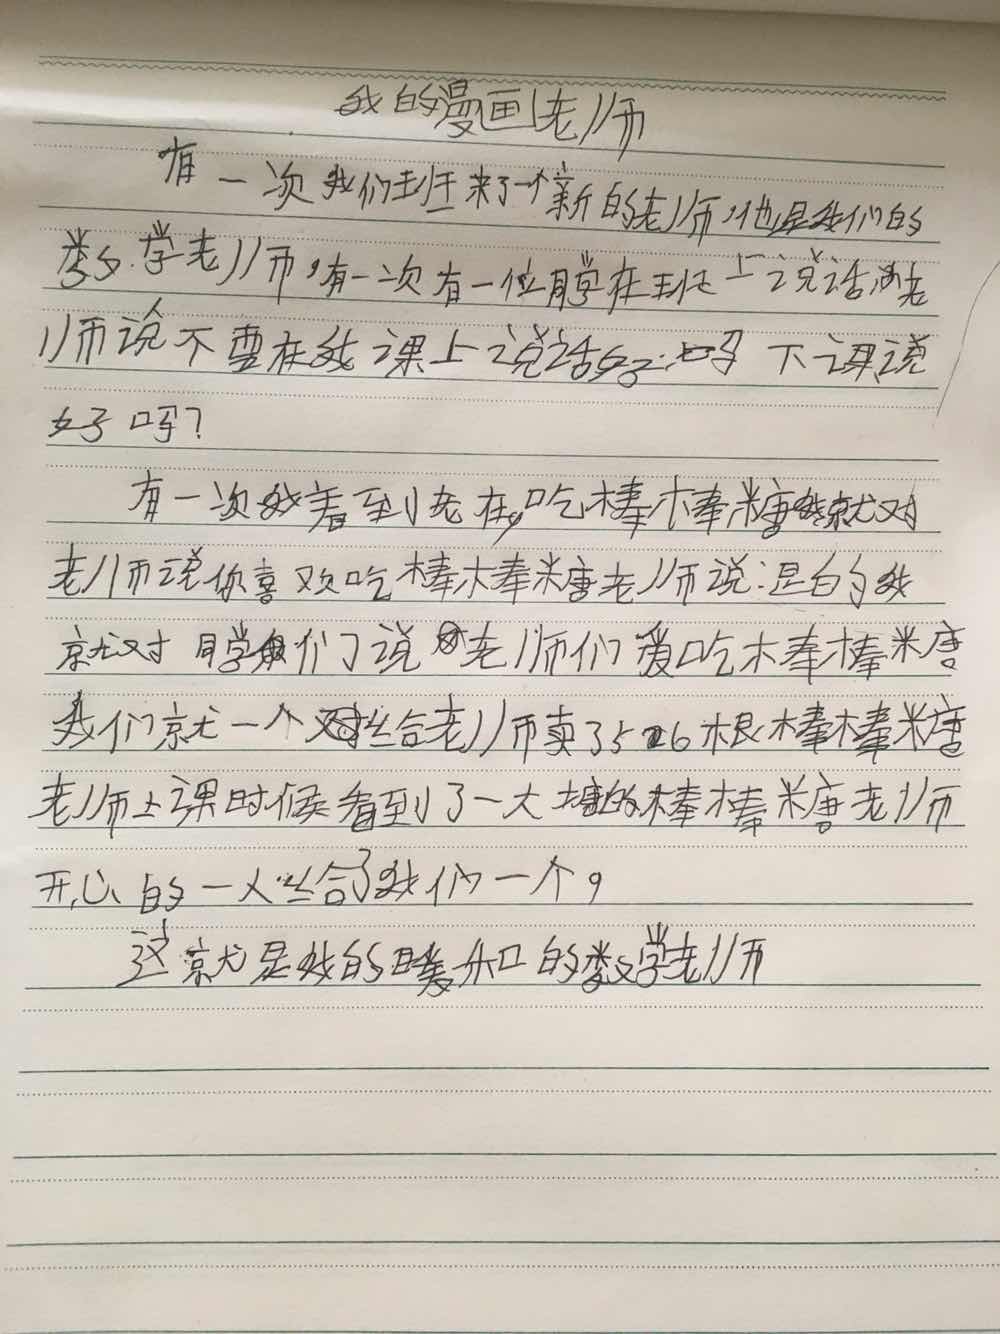 我的漫画老师
有一次我们班来了一个新的老师,他是我们的
数学老师,有一次有一位同学在班上说话 老
师说不要在我课上说话好吗 下课说
好吗?
有一次我看到老在,吃棒棒糖我就对
老师说你喜欢吃棒棒糖老师说:是的我
就对同学们了说 老师们爱吃棒棒糖
我们就一个 给老师卖了5 26根棒棒糖
老师上课时候看到了一大堆的棒棒糖老师
开心的一人给了我们一个,
这就是我的 和的数学老师